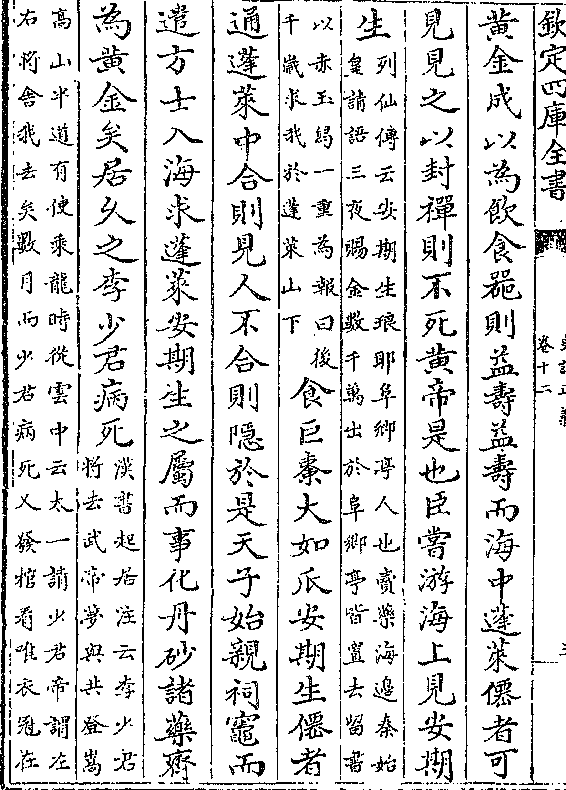 欽定四庫全書
卷十二
黄金成以為飲食器則益壽益壽而海中蓬萊僊者可
見見之以封禪則不死黄帝是也臣嘗游海上見安期
生
列仙傳云安期生琅耶阜鄉亭人也賣藥海邊秦始
皇請語三夜賜金數千萬出於阜鄉亭皆置去留書
以赤玉舄一重為報曰後
千歲求我於蓬萊山下
食巨棗大如瓜安期生僊者
通蓬萊中合則見人不合則隠於是天子始親祠竈而
遣方士入海求蓬萊安期生之屬而事化丹砂諸藥齊
為黄金矣居久之李少君病死
漢書起居注云李少君
將去武帝夢與共登嵩
高山半道有使乘龍時從雲中云太一請少君帝謂左
右將舍我去矣數月而少君病死又發棺看唯衣冠在